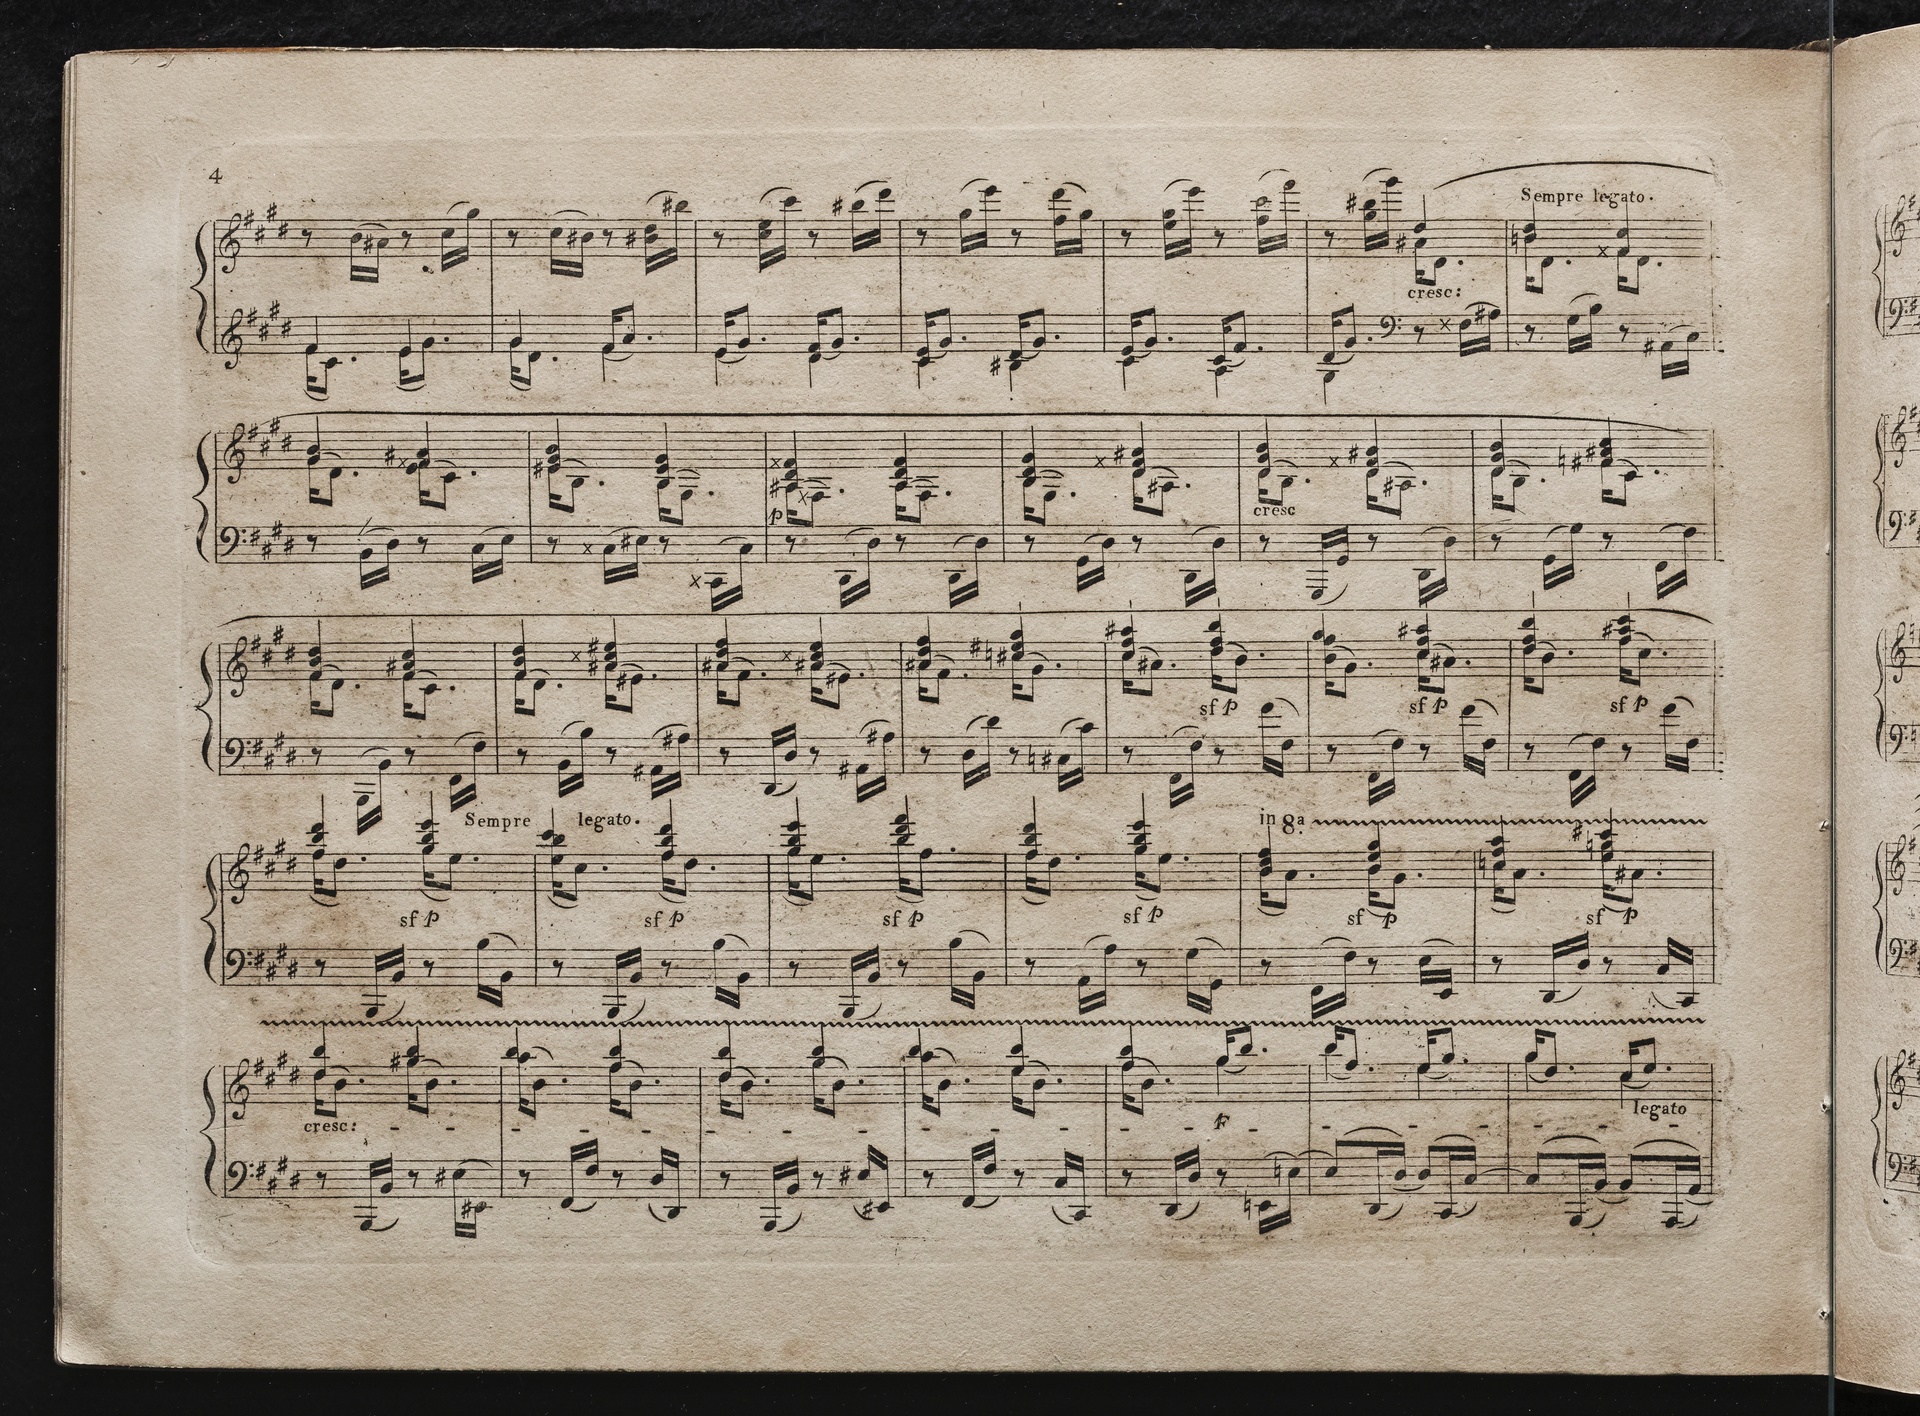 4
Sempre legato.
cresc:
p cresc
sf p sf p sf p
Sempre legato. in 8a
sf p sf p sf p sf p sf p sf p
cresc: - - - - - - - - - - - F - - - - - - legato